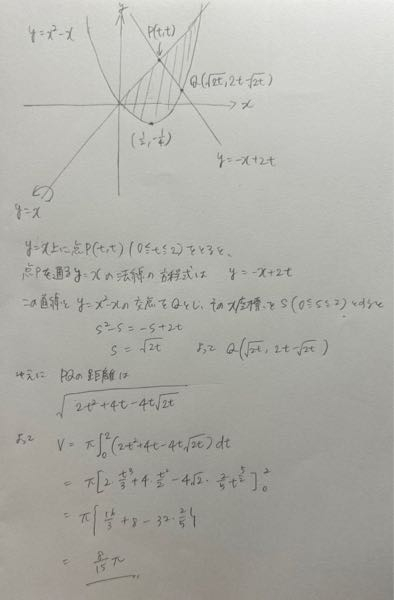 y=x²-x
y
P(t,t)
Q(√2t, 2t-√2t)
x
(1/2, -1/4)
y=-x+2t
y=x
y=x上に点P(t,t) (0≦t≦2)をとると、
点Pを通るy=xの法線の方程式は y=-x+2t
この直線とy=x²-xの交点をQとし、そのx座標をS(0≦S≦2)とすると
S²-S=-S+2t
S=√2t よって Q(√2t, 2t-√2t)
ゆえに PQの距離は
√2t²+4t-4t√2t
よって V=π∫₀²(2t²+4t-4t√2t)dt
=π[2·t³/3+4·t²/2-4√2·2/5 t^(5/2)]₀²
=π{16/3+8-32·2/5}
=8/15 π